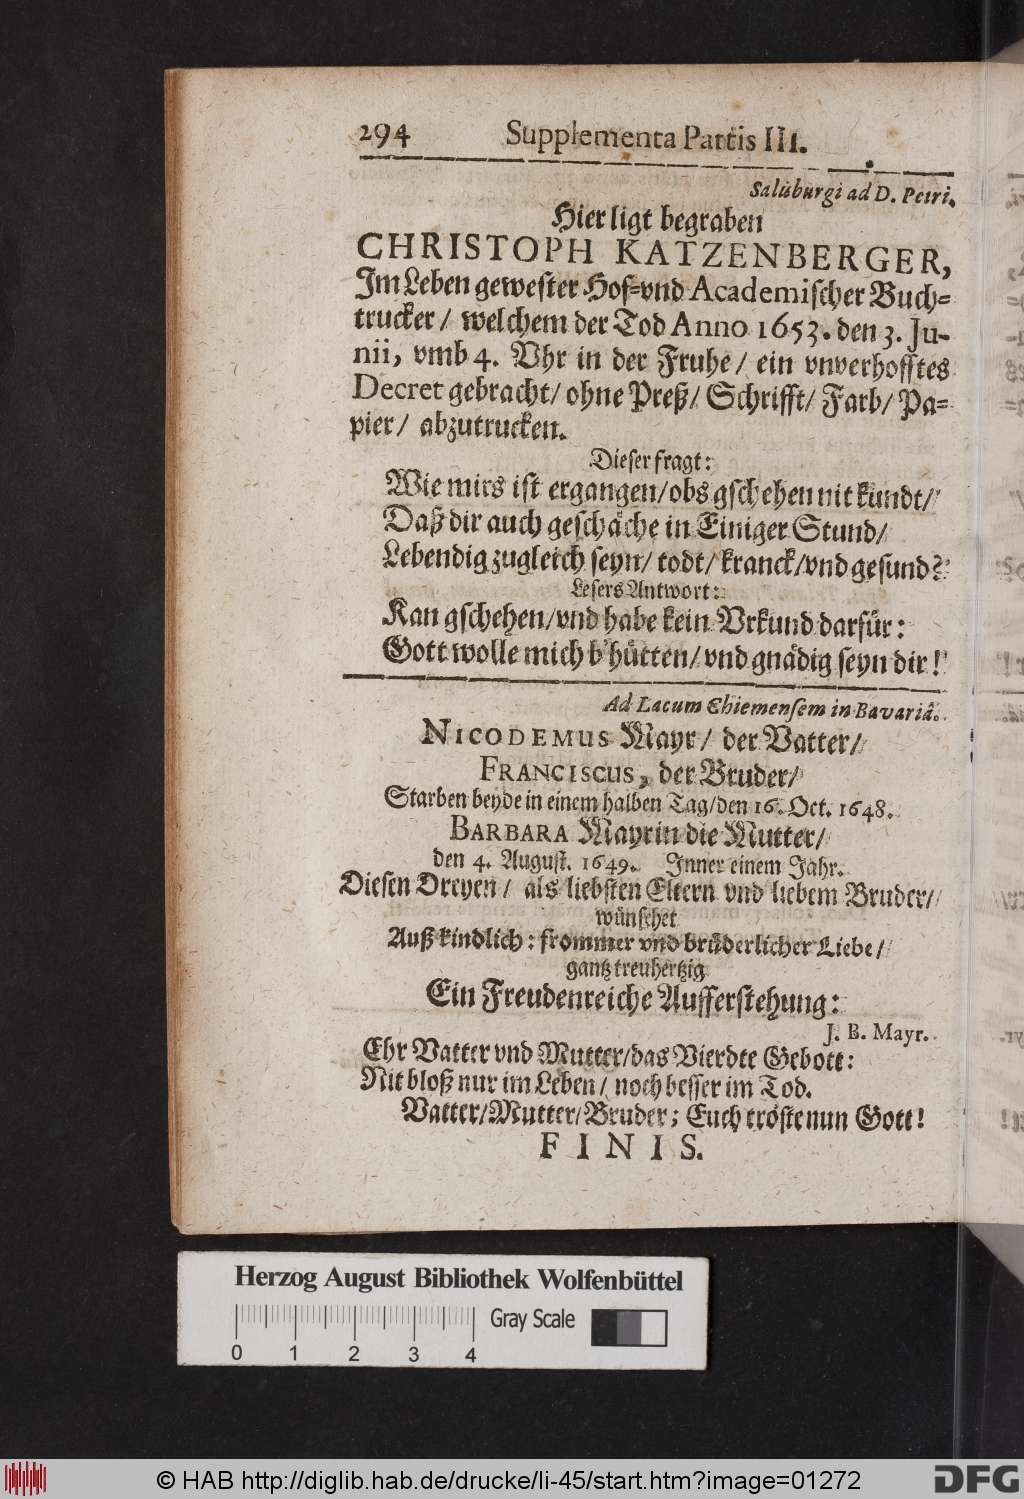 294 Supplementa Partis III.
Salisburgi ad D. Petri.
Hier ligt begraben
CHRISTOPH KATZENBERGER,
Im Leben gewester Hof= vnd Academischer Buch=
trucker / welchem der Tod Anno 1653. den 3. Ju-
nii, vmb 4. Vhr in der Fruhe / ein vnverhofftes
Decret gebracht / ohne Preß / Schrifft / Farb / Pa=
pier / abzutrucken.
Dieser fragt:
Wie mirs ist ergangen / obs gschehen nit kundt /
Daß dir auch geschäche in Einiger Stund /
Lebendig zugleich seyn / todt / kranck / vnd gesund?
Lesers Antwort:
Kan gschehen / vnd habe kein Vrkund darfür:
Gott wolle mich b'hütten / vnd gnädig seyn dir!
Ad Lacum Chiemensem in Bavariâ.
NICODEMUS Mayr / der Vatter /
FRANCISCUS, der Bruder /
Starben beyde in einem halben Tag / den 16. Oct. 1648.
BARBARA Mayrin die Mutter /
den 4. August. 1649. Inner einem Jahr.
Diesen Dreyen / als liebsten Eltern vnd liebem Bruder /
wünschet
Auß kindlich: frommer vnd brüderlicher Liebe /
gantz treuhertzig
Ein Freudenreiche Aufferstehung:
J. B. Mayr.
Ehr Vatter vnd Mutter / das Vierdte Gebott:
Nit bloß nur im Leben / noch besser im Tod.
Vatter / Mutter / Bruder; Euch tröste nun Gott!
FINIS.
Herzog August Bibliothek Wolfenbüttel
Gray Scale
0 1 2 3 4
© HAB http://diglib.hab.de/drucke/li-45/start.htm?image=01272
DFG